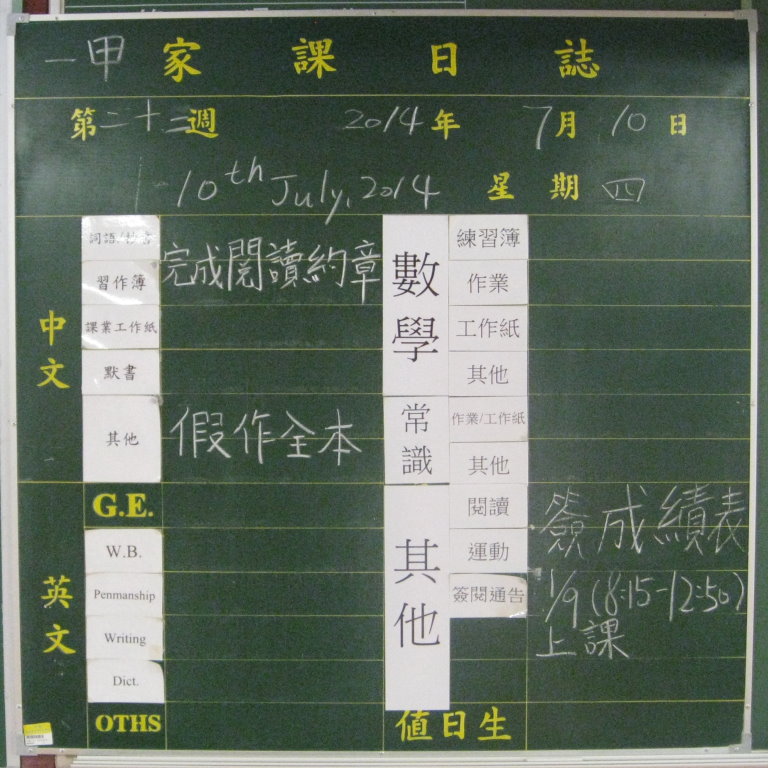 一甲 家課日誌
第二十三週 2014年 7月 10日
10th July, 2014 星期四
中文
詞語/抄書
習作簿
完成閱讀約章
課業工作紙
默書
其他
假作全本
英文
G.E.
W.B.
Penmanship
Writing
Dict.
OTHS
數學
練習簿
作業
工作紙
其他
常識
作業/工作紙
其他
其他
閱讀
運動
簽閱通告
簽成績表
1/9 (8:15-12:50)
上課
值日生